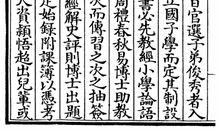 日官選子弟俊秀者入
立國子學而定其制設
書必先教經小學論語
周禮春秋易博士助教
次而傳習之次入抽簽
經解史評則博士出題
定始錄附課簿以憑考
大賢穎悟超出兒輩或